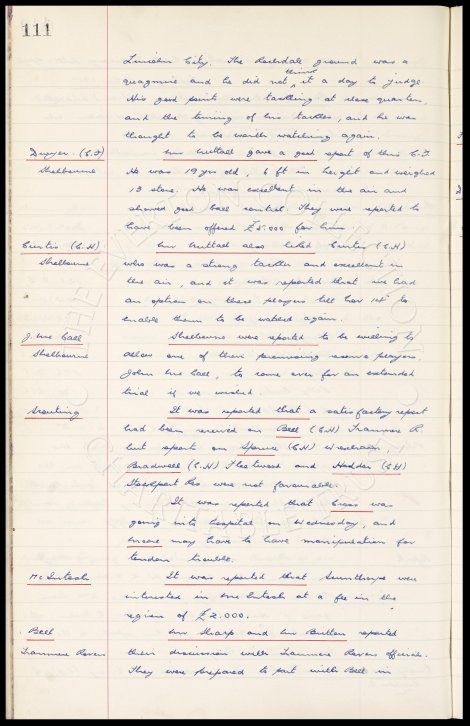 111
Lincoln City. The Rochdale ground was a
quagmire and he did not think it a day to judge
His good points were tackling at close quarters,
and the timing of his tackles, and he was
thought to be worth watching again.
Dwyer. (C.F) Mr Nuttall gave a good report of this C.F.
Shelbourne He was 19 yrs old, 6 ft in height and weighed
13 stone. He was excellent in the air and
showed good ball control. They were reported to
have been offered £5.000 for him.
Curtis (C.H) Mr Nuttall also liked Curtis (C.H)
Shelbourne who was a strong tackler and excellent in
the air, and it was reported that we had
an option on these players till Nov 14th to
enable them to be watched again.
J. Mc Call Shelbourne were reported to be willing to
Shelbourne allow one of their promising reserve players
John Mc Call, to come over for an extended
trial if we wished.
Scouting It was reported that a satisfactory report
had been received on Bell (C.H) Tranmere R.
but reports on (C.H) Wrexham,
Bradwell (C.H) Fleetwood and Hodder (C.H)
Stockport Res were not favourable.
It was reported that Cross was
going into hospital on Wednesday, and
may have to have manipulation for
tendon trouble.
Mc Intosh It was reported that Scunthorpe were
interested in Mc Intosh at a fee in the
region of £2.000.
Bell Mr Sharp and Mr Britton reported
Tranmere Rovers their discussion with Tranmere Rovers officials.
They were prepared to part with Bell in